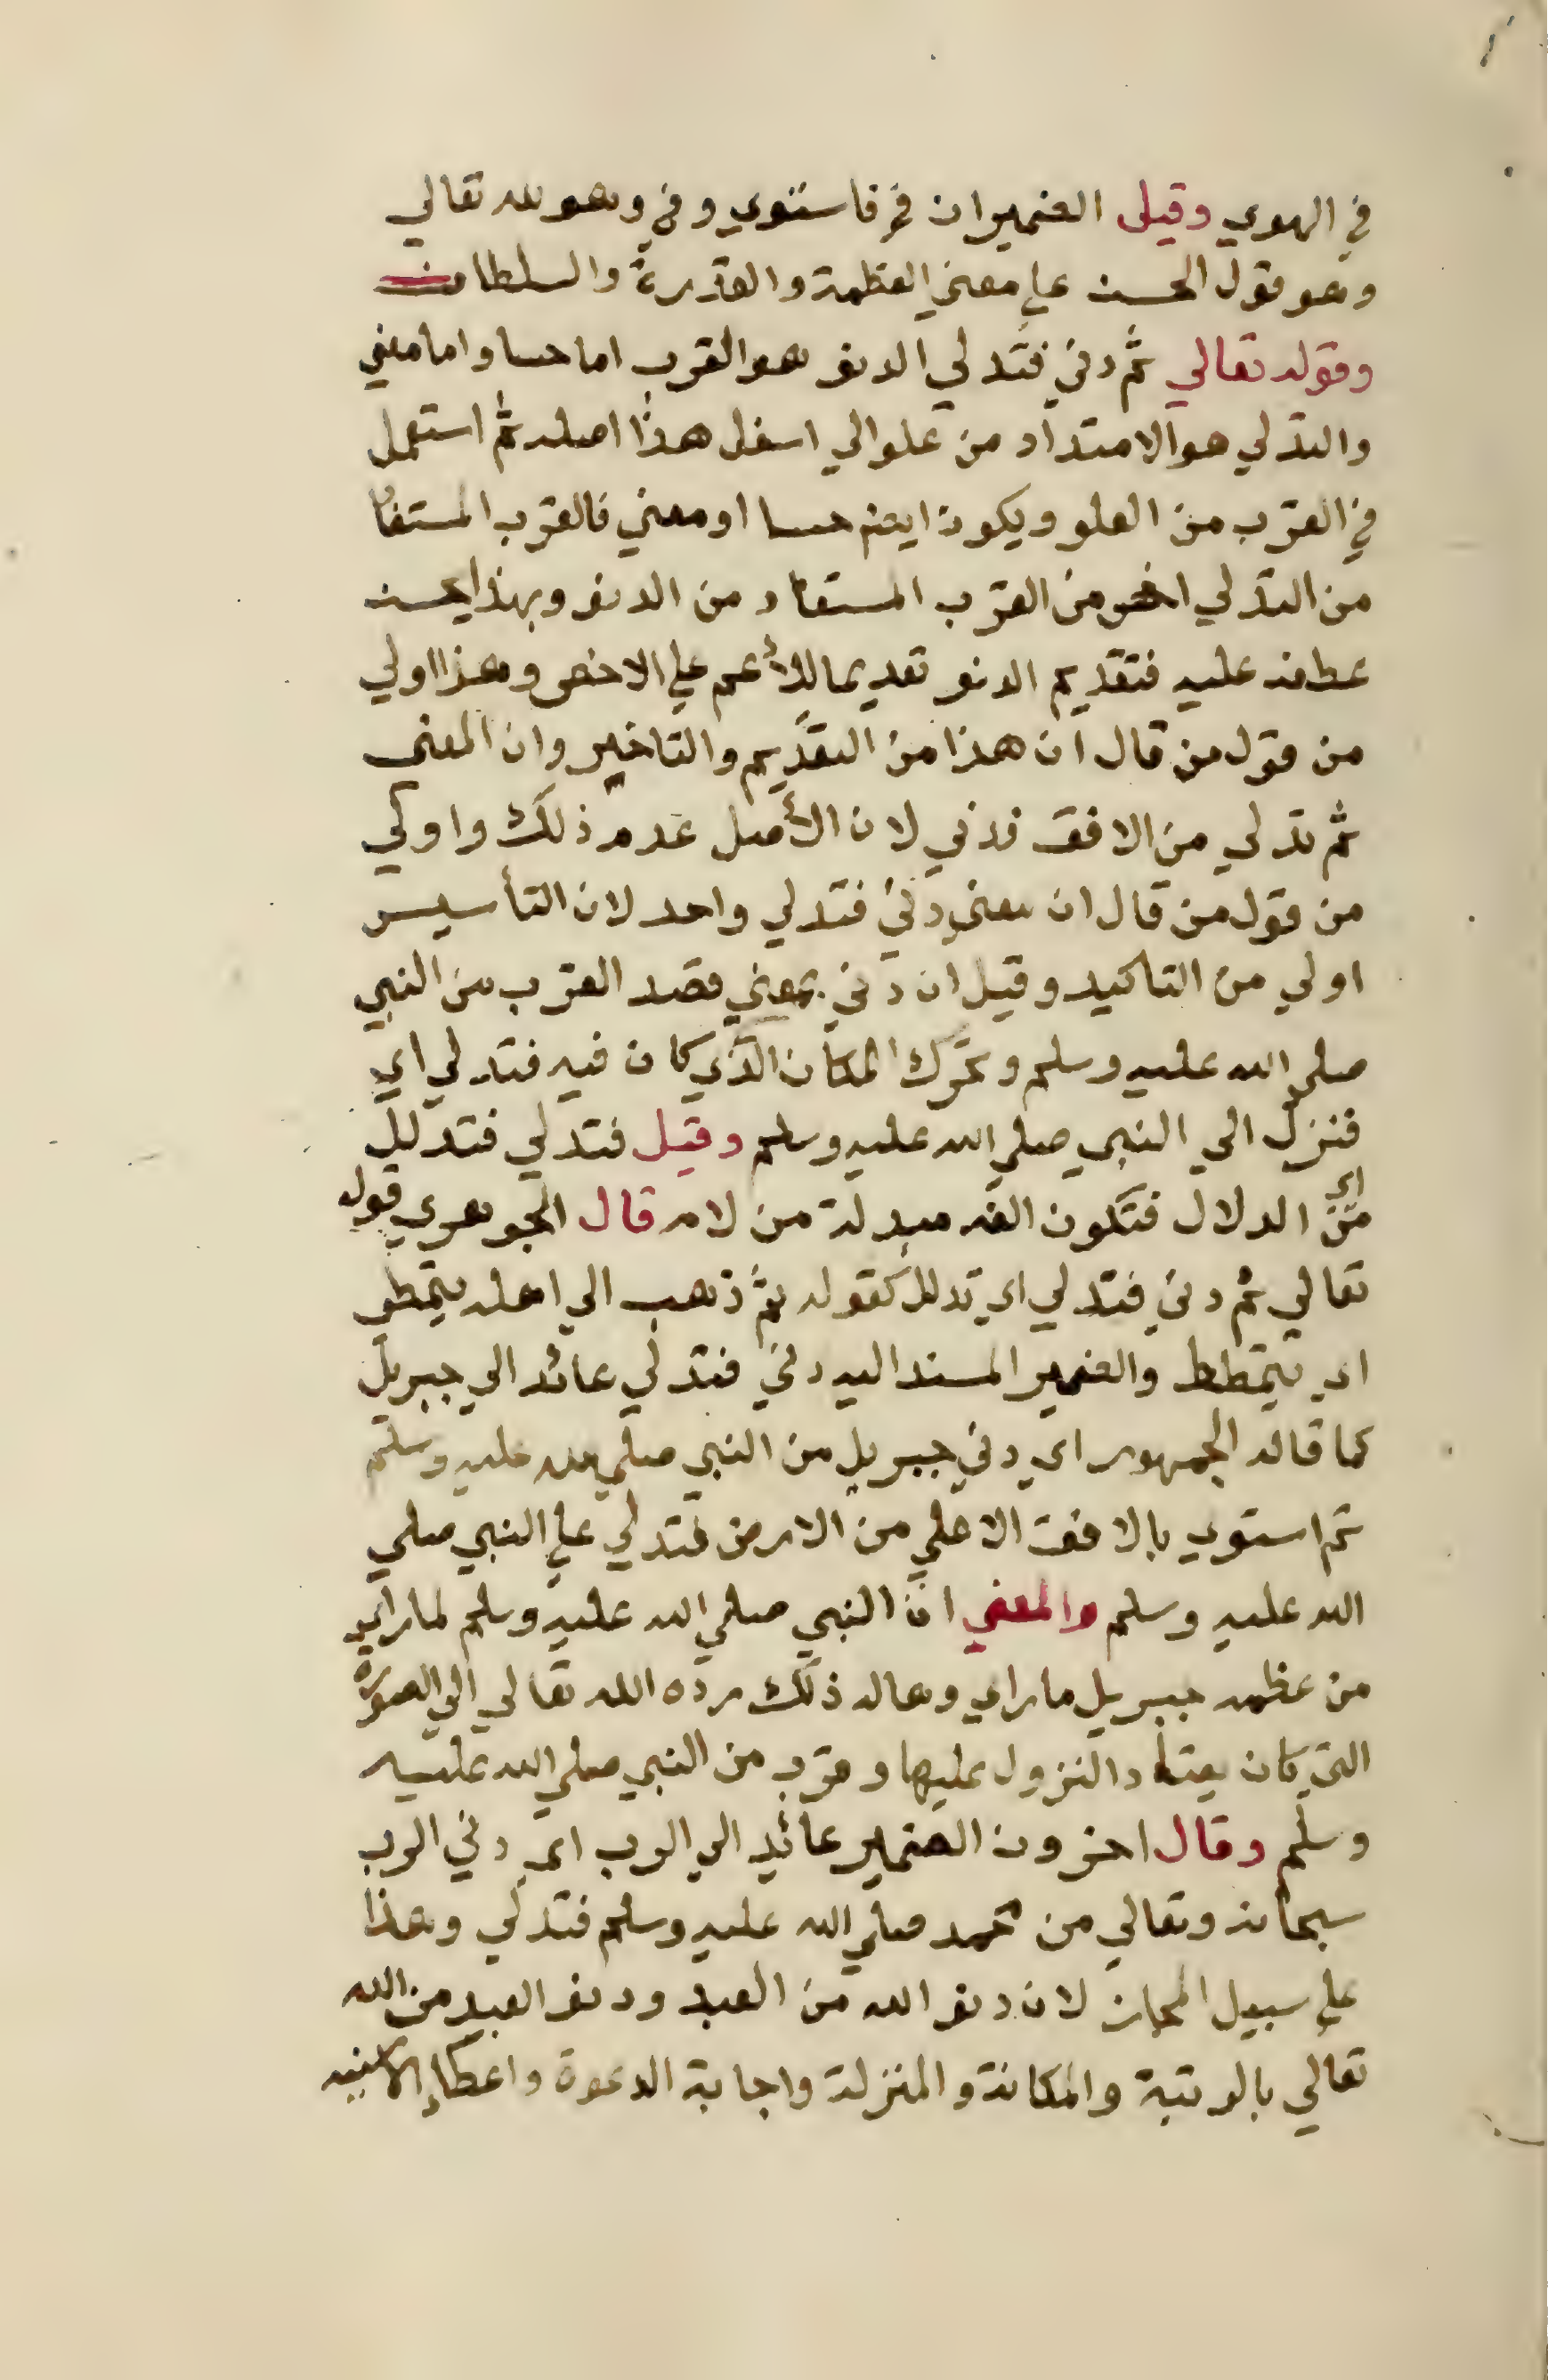 في الهوي وقيل الضميران في فاستوي وفي وهو لله تعالي
وهو قول الحسن علي معني العظمة والقدرة والسلطان
وقوله تعالي ثم دني فتدلي الدنو هو القرب اما حسا واما معني
والتدلي هو الامتداد من علو الي اسفل هذا اصله ثم استعمل
في القرب من العلو ويكون ايضا حسا او معني فالقرب المستفاد
من التدلي اخص من القرب المستفاد من الدنو وبهذا يحسن
عطفه عليه فتقديم الدنو تقديما للأعم علي الاخص وهذا اولي
من قول من قال ان هذا من التقديم والتاخير وان المعني
ثم تدلي من الافق فدني لان الأصل عدم ذلك واولي
من قول من قال ان معني دني فتدلي واحد لان التأسيس
اولي من التاكيد وقيل ان دني بمعني قصد القرب من النبي
صلي الله عليه وسلم وتحرك المكان الذي كان فيه فتدلي اي
فنزل الي النبي صلي الله عليه وسلم وقيل فتدلي فتدلل
اي من الدلال فتكون الفه مبدلة من لام قال الجوهري قوله
تعالي ثم دني فتدلي اي تدلل كقوله ثم ذهب الي اهله يتمطي
اي يتمطط والضمير المسند اليه دني فتدلي عائد الي جبريل
كما قاله الجمهور اي دني جبريل من النبي صلي الله عليه وسلم
ثم استوي بالافق الاعلي من الارض فتدلي علي النبي صلي
الله عليه وسلم والمعني ان النبي صلي الله عليه وسلم لما راي
من عظمه جبريل ما راي وهاله ذلك رده الله تعالي الي الصورة
التي كان يعتاد النزول عليها وقرب من النبي صلي الله عليه
وسلم وقال اخرون الضمير عائد الي الرب اي دني الرب
سبحانه وتعالي من محمد صلي الله عليه وسلم فتدلي وهذا
علي سبيل المجاز لان دنو الله من العبد ودنو العبد من الله
تعالي بالرتبة والمكانة والمنزلة واجابة الدعوة واعطاء الامنيه